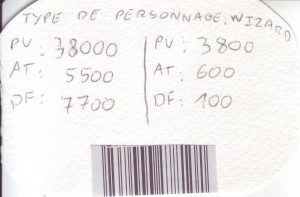 TYPE DE PERSONNAGE: WIZARD
PV: 38000
AT: 5500
DF: 7700
PV: 3800
AT: 600
DF: 100